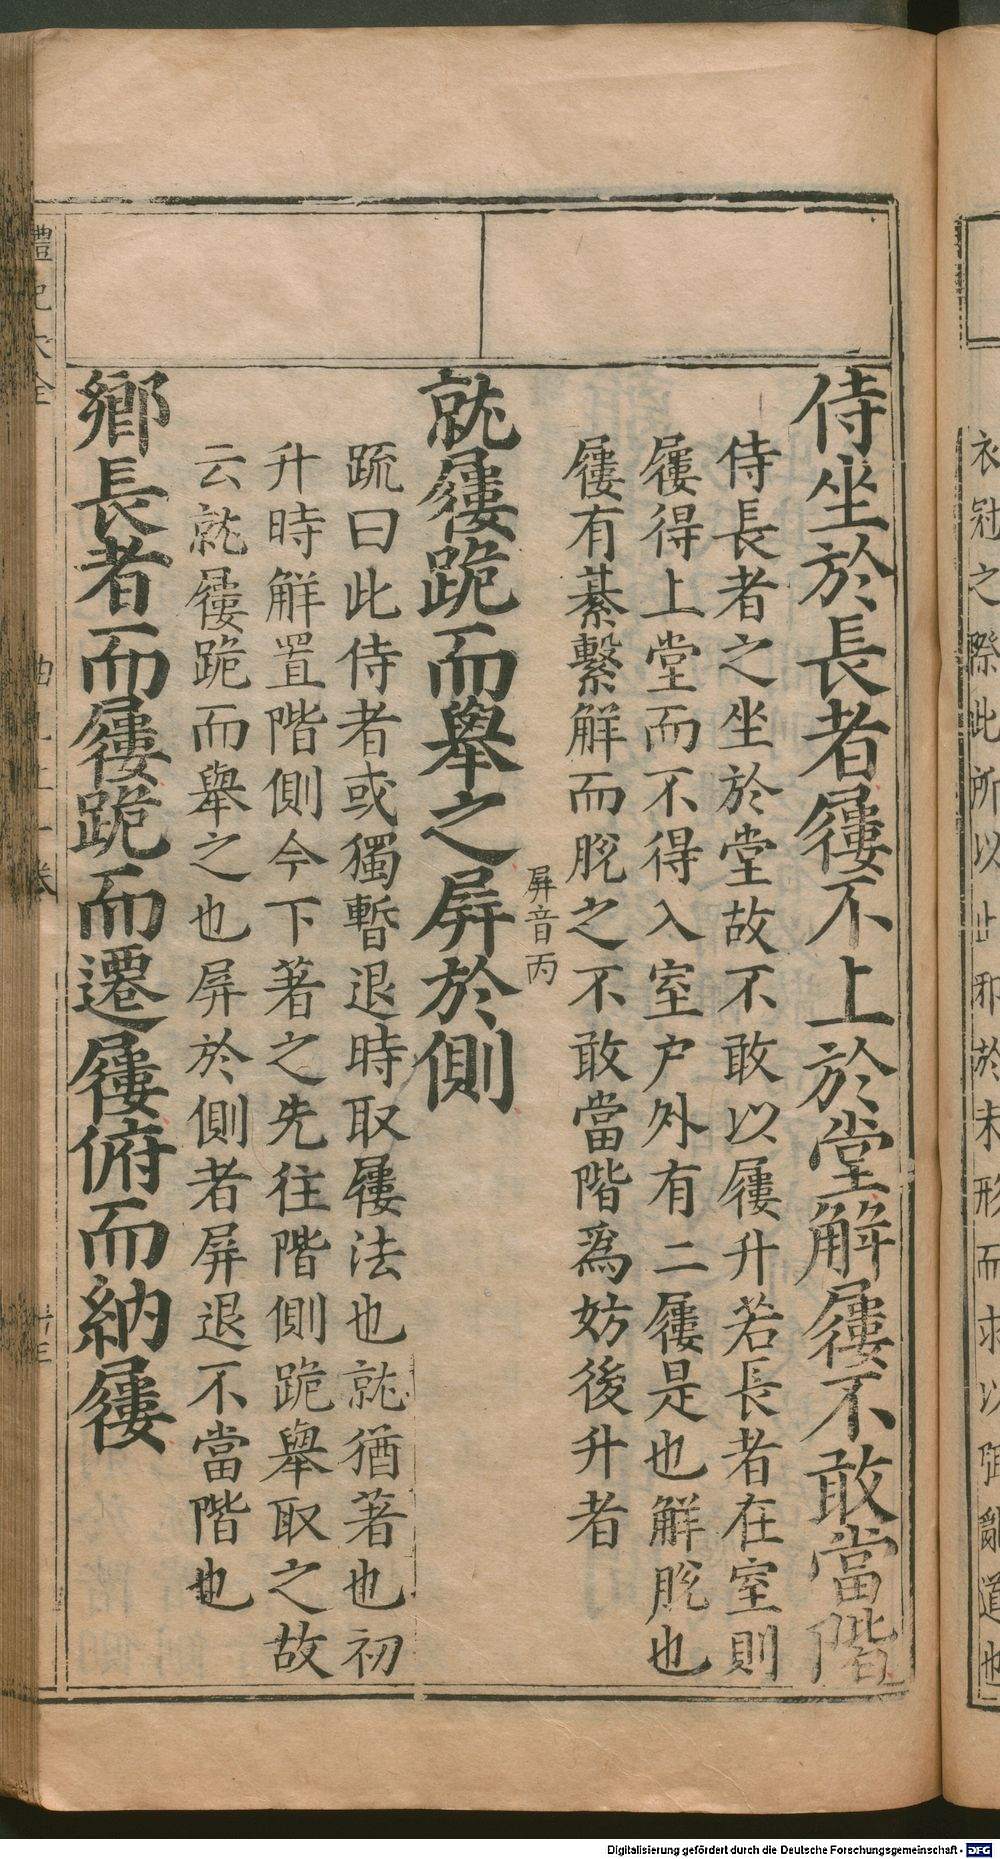 衣冠之際此所以止邪於未形而求以弭亂道也
侍坐於長者屨不上於堂解屨不敢當階
侍長者之坐於堂故不敢以屨升若長者在室則
屨得上堂而不得入室户外有二屨是也解脫也
屨有綦繫解而脫之不敢當階爲妨後升者
屏音丙
就屨跪而舉之屏於側
䟽曰此侍者或獨暫退時取屨法也就猶著也初
升時解置階側今下著之先往階側跪舉取之故
云就屨跪而舉之也屏於側者屏退不當階也
鄉長者而屨跪而遷屨俯而納屨
禮記大全
曲禮上一卷
廿三
Digitalisierung gefördert durch die Deutsche Forschungsgemeinschaft - DFG